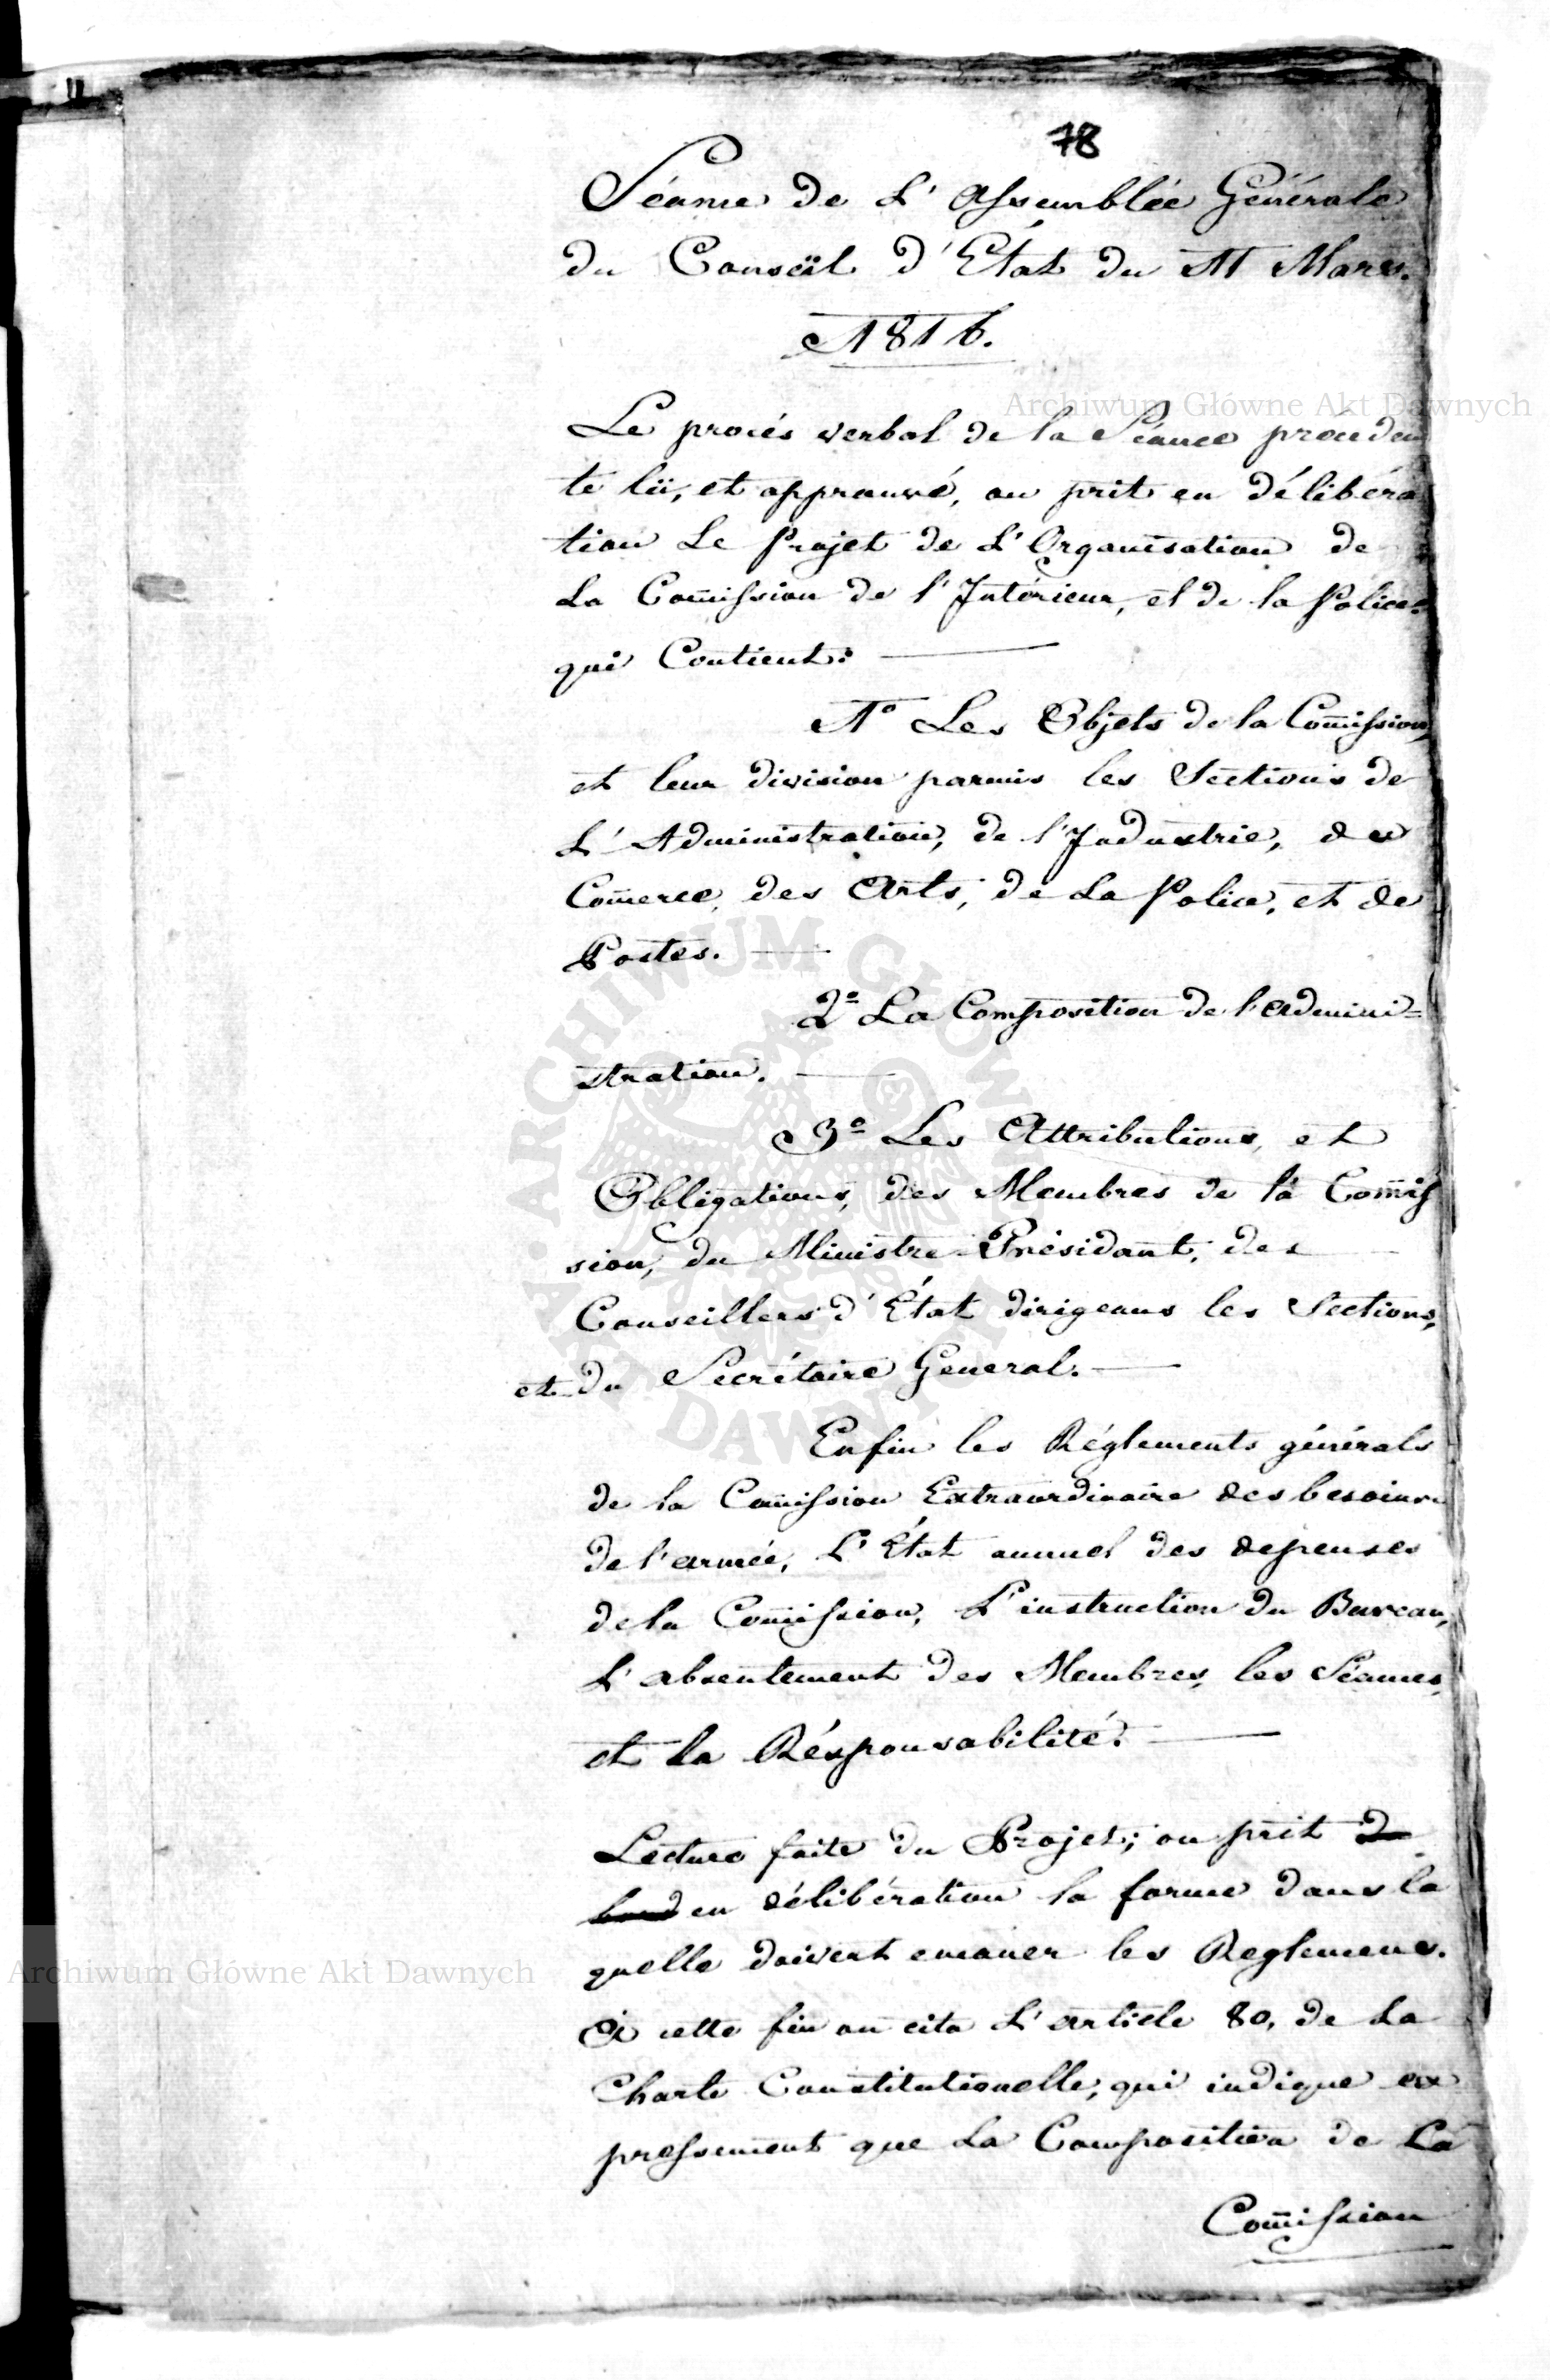 78
Séance de L'Assemblée Générale
du Conseil d'État du 11 Mars.
1816.
Archiwum Główne Akt Dawnych
Le procés verbal de la Séance précéden
te lü, et approuvé, on prit en délibéra
tion Le Projet de L'Organisation de
La Com̄ission de l'Intérieur, et de la Police.
qui Contient:
1º Les Objets de la Com̄ission,
et leur division parmis les Sections de
L'Administration, de l'Industrie, de
Com̄erce, des Arts, de La Police, et de
Postes.
2º La Composition de l'Admini=
stration.
3º Les Attributions, et
Obligations, des Membres de la Com̄is
sion, du Ministre Présidant, des
Conseillers d'État dirigeans les Sections,
et du Secrétaire General.
Enfin les Réglements générals
de la Com̄ission Extraordinaire des besoins
de l'armée, L'État annuel des depenses
de la Com̄ission, L'instruction du Bureau,
L'absentement des Membres, les Séances,
et la Résponsabilité.
Lecture faite du Projet; on prit d
bord en délibération la forme dans la
quelle doivent emaner les Reglemens.
Archiwum Główne Akt Dawnych
A cette fin on cita L'article 80, de La
Charte Constitutionelle, qui indique ex
pressement que La Composition de La
Com̄ission
ARCHIWUM GŁÓWNE AKT DAWNYCH